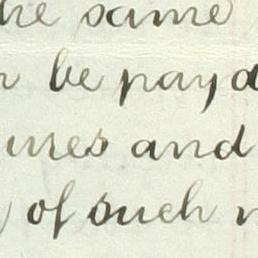 the same
be paya
ures and
of such